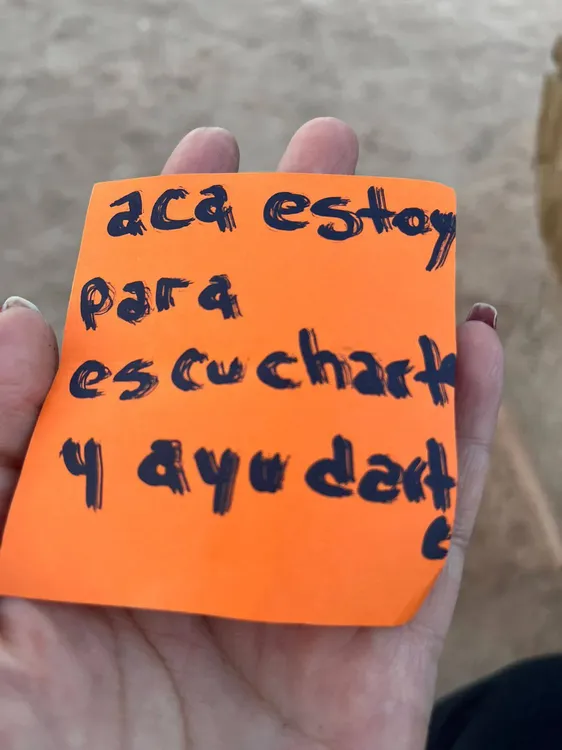 aca estoy
para
escuchart
y ayudart
e